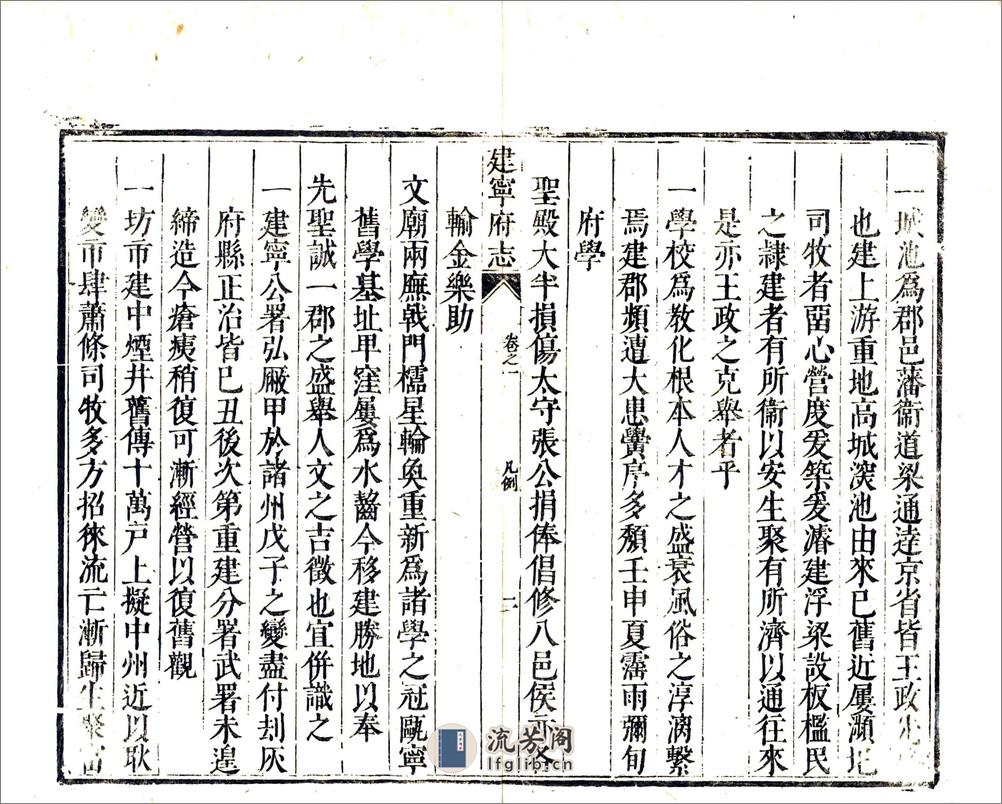 一城池爲郡邑藩衞道梁通逹京省皆王政
也建上游重地高城深池由來已舊近屢瀕圮
司牧者畱心營度爰築爰濬建浮梁設板檻民
之隸建者有所衞以安生聚有所濟以通往來
是亦王政之克舉者乎
一學校爲敎化根本人才之盛衰風俗之淳漓繫
焉建郡頻遭大患黌序多頹壬申夏霪雨彌旬
府學
聖殿大半損傷太守張公捐俸倡修八邑侯亦各
建寧府志
卷之一
凡例
二
輸金樂助
文廟兩廡戟門櫺星輪奐重新爲諸學之冠甌寧
舊學基址甲窪屢爲水齧今移建勝地以奉
先聖誠一郡之盛舉人文之吉徵也宜併識之
一建寧公署弘厰甲於諸州戊子之變盡付刦灰
府縣正治皆巳丑後次第重建分署武署未遑
締造今瘡痍稍復可漸經營以復舊觀
一坊市建中煙井舊傳十萬戸上擬中州近以耿
變市肆蕭條司牧多方招徠流亡漸歸生聚富
流芳阁
lfglib.cn